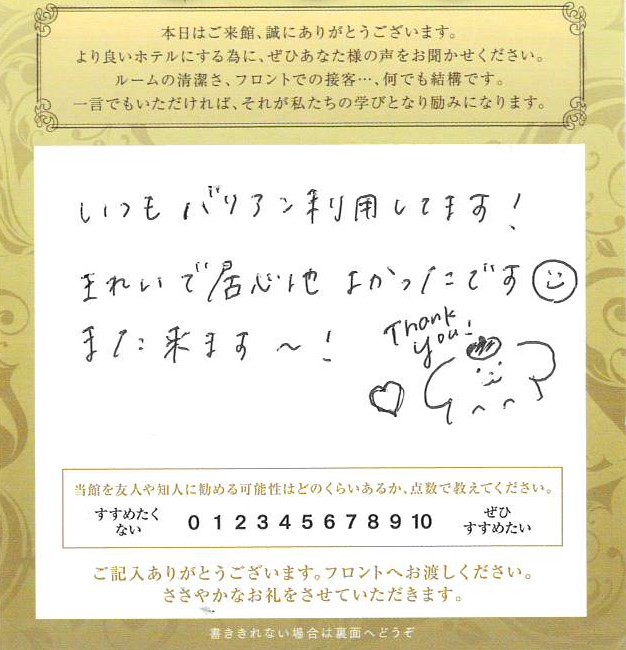 本日はご来館、誠にありがとうございます。
より良いホテルにする為に、ぜひあなた様の声をお聞かせください。
ルームの清潔さ、フロントでの接客…、何でも結構です。
一言でもいただければ、それが私たちの学びとなり励みになります。
いつもバリアン利用してます!
きれいで居心地よかったです
また来ます〜!
Thank
you!
当館を友人や知人に勧める可能性はどのくらいあるか、点数で教えてください。
すすめたく
ない
0 1 2 3 4 5 6 7 8 9 10
ぜひ
すすめたい
ご記入ありがとうございます。フロントへお渡しください。
ささやかなお礼をさせていただきます。
書ききれない場合は裏面へどうぞ